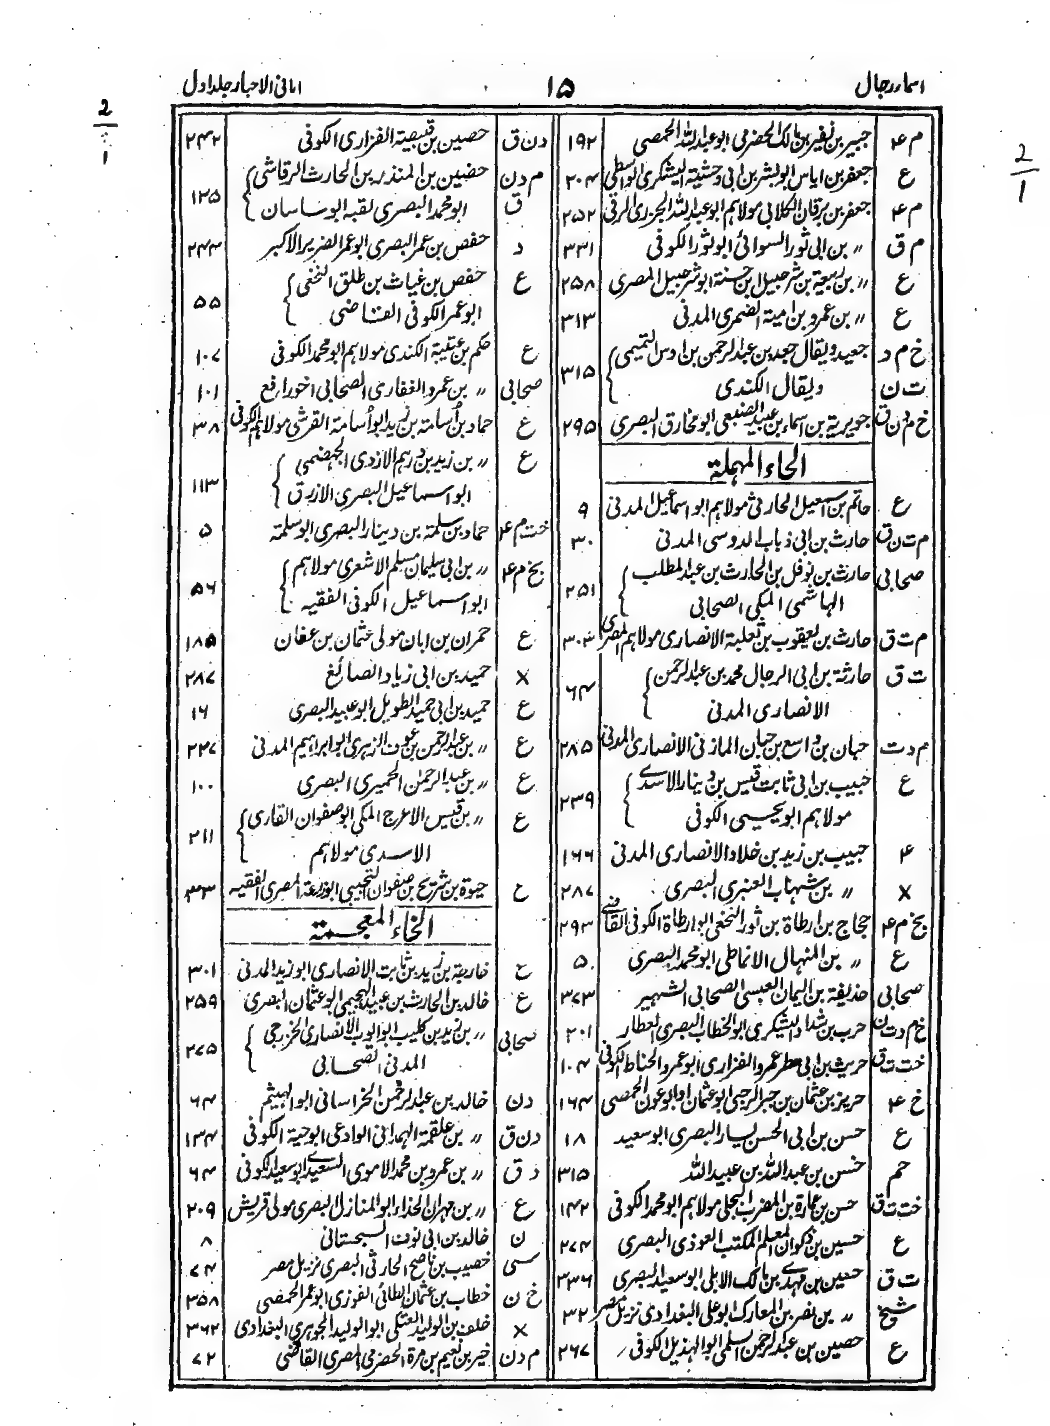 اسماء رجال ۱۵ امانی الاحبار جلد اول
م ۴ جبیر بن نفیر بن مالک الحضرمی ابو عبد اللہ الحمصی ۱۹۲
ع جعفر بن ایاس ابو بشر بن ابی وحشیۃ الیشکری الواسطی ۲۰۴
م ۴ جعفر بن برقان الکلابی مولاہم ابو عبد اللہ الجزری الرقی ۲۵۲
م ق 〃 بن ابی ثور السوائی ابو ثور الکوفی ۳۳۱
ع 〃 بن ربیعۃ بن شرحبیل ابن حسنۃ ابو شرحبیل المصری ۲۵۸
ع 〃 بن عمرو بن امیۃ الضمری المدنی ۳۱۳
خ م د جعید ویقال جعد بن عبد الرحمن بن اوس التمیمی
ت ن ویقال الکندی ۳۱۵
خ م د ن ق جویریۃ بن اسماء بن عبید الضبعی ابو مخارق البصری ۲۹۵
الحاء المہملۃ
ع حاتم بن اسمعیل الحارثی مولاہم ابو اسماعیل المدنی ۹
م ت ن ق حارث بن ابی ذباب الدوسی المدنی ۳۰
صحابی حارث بن نوفل بن الحارث بن عبد المطلب
الہاشمی المکی الصحابی ۲۵۱
م ت ق حارث بن یعقوب بن ثعلبۃ الانصاری مولاہم المصری ۳۰۴
ت ق حارثۃ بن ابی الرجال محمد بن عبد الرحمن
الانصاری المدنی ۶۴
م د ت حبان بن واسع بن حبان المازنی الانصاری المدنی ۲۸۵
ع حبیب بن ابی ثابت قیس بن دینار الاسدی
مولاہم ابو یحیی الکوفی ۲۳۹
۴ حبیب بن زید بن خلاد الانصاری المدنی ۱۶۶
x 〃 بن شہاب العنبری البصری ۲۸۷
بخ م ۴ حجاج بن ارطاۃ بن ثور النخعی ابو ارطاۃ الکوفی القاضی ۲۹۳
ع 〃 بن المنہال الانماطی ابو محمد البصری ۵۰
صحابی حذیفۃ بن الیمان العبسی الصحابی الشہیر ۳۷۳
خ م د ت ن حرب بن شداد الیشکری ابو الخطاب البصری العطار ۲۰۱
خت ت ق حریث بن ابی مطر عمرو الفزاری ابو عمرو الحناط الکوفی ۱۰۴
خ ۴ حریز بن عثمان بن جبر الرحبی ابو عثمان او ابو عون الحمصی ۱۶۴
ع حسن بن ابی الحسن یسار البصری ابو سعید ۱۸
حم حسن بن عبد اللہ بن عبید اللہ ۳۱۵
خت ت ق حسن بن عمارۃ بن المضرب البجلی مولاہم ابو محمد الکوفی ۱۴۲
ع حسین بن ذکوان المعلم المکتب العوذی البصری ۲۷۴
ت ق حسین بن مہدی بن مالک الابلی ابو سعید البصری ۳۳۶
شیخ 〃 بن نصر بن المعارک ابو علی البغدادی نزیل مصر ۳۲
ع حصین بن عبد الرحمن السلمی ابو الہذیل الکوفی ۲۶۷
د ن ق حصین بن قبیصۃ الفزاری الکوفی ۲۴۲
م د ن حضین بن المنذر بن الحارث الرقاشی
ق ابو محمد البصری لقبہ ابو ساسان ۱۲۵
د حفص بن عمر البصری ابو عمر الضریر الاکبر ۲۴۴
ع حفص بن غیاث بن طلق النخعی
ابو عمر الکوفی القاضی ۵۵
ع حکم بن عتیبۃ الکندی مولاہم ابو محمد الکوفی ۱۰۷
صحابی 〃 بن عمرو الغفاری الصحابی اخو رافع ۱۰۱
ع حماد بن أسامۃ بن زید ابو أسامۃ القرشی مولاہم الکوفی ۳۸
ع 〃 بن زید بن درہم الازدی الجہضمی
ابو اسماعیل البصری الازرق ۱۱۳
خت م ۴ حماد بن سلمۃ بن دینار البصری ابو سلمۃ ۵
بخ م ۴ 〃 بن ابی سلیمان مسلم الاشعری مولاہم
ابو اسماعیل الکوفی الفقیہ ۵۶
ع حمران بن ابان مولی عثمان بن عفان ۱۸۵
x حمید بن ابی زیاد الصائغ ۲۸۷
ع حمید بن ابی حمید الطویل ابو عبید البصری ۱۶
ع 〃 بن عبد الرحمن بن عوف الزہری ابو ابراہیم المدنی ۲۲۷
ع 〃 بن عبد الرحمٰن الحمیری البصری ۱۰۰
ع 〃 بن قیس الاعرج المکی ابو صفوان القاری
الاسدی مولاہم ۲۱۱
ع حیوۃ بن شریح بن صفوان التجیبی ابو زرعۃ المصری الفقیہ ۳۳
الخاء المعجمۃ
ع خارجۃ بن زید بن ثابت الانصاری ابو زید المدنی ۳۰۱
ع خالد بن الحارث بن عبید الہجیمی ابو عثمان البصری ۲۵۹
صحابی 〃 بن زید بن کلیب ابو ایوب الانصاری الخزرجی
المدنی الصحابی ۲۷۵
د ن خالد بن عبد الرحمن الخراسانی ابو الہیثم ۶۴
د ن ق 〃 بن علقمۃ الہمدانی الوادعی ابو حیۃ الکوفی ۱۳۴
د ق 〃 بن عمرو بن محمد الاموی السعیدی ابو سعید الکوفی ۶۴
ع 〃 بن مہران الحذاء ابو المنازل البصری مولی قریش ۲۰۹
ن خالد بن ابی نوف السجستانی ۸
سی خصیب بن ناصح الحارثی البصری نزیل مصر ۷۴
خ ن خطاب بن عثمان الطائی الفوزی ابو عمر الحمصی ۳۵۸
x خلف بن الولید العتکی ابو الولید الجوہری البغدادی ۳۶۲
م د ن خیر بن نعیم بن مرۃ الحضرمی المصری القاضی ۷۲
2
1
2
1